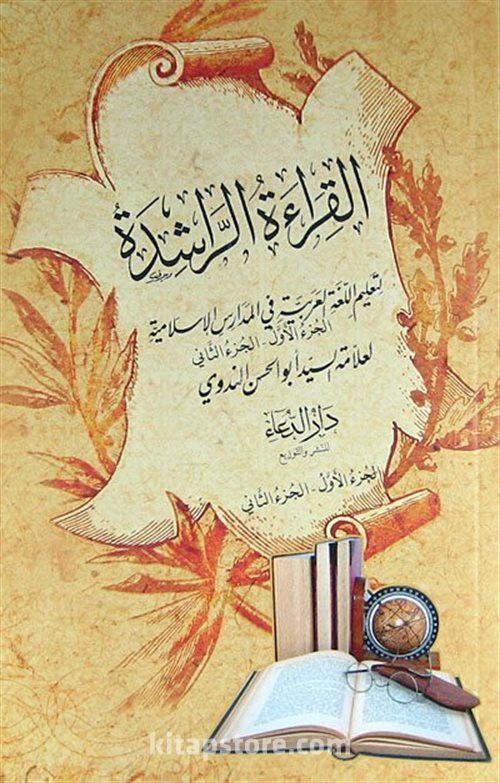 القِرَاءَةُ الرَّاشِدَةُ
لتعليم اللغة العربية في المدارس الإسلامية
الجُزءُ الأَوَّلُ - الجُزءُ الثَّاني
لعلامة السيد أبو الحسن الندوي
دَارُ الدُّعَاءِ
للنشر والتوزيع
الجُزءُ الأَوَّلُ - الجُزءُ الثَّاني
kitapstore.com